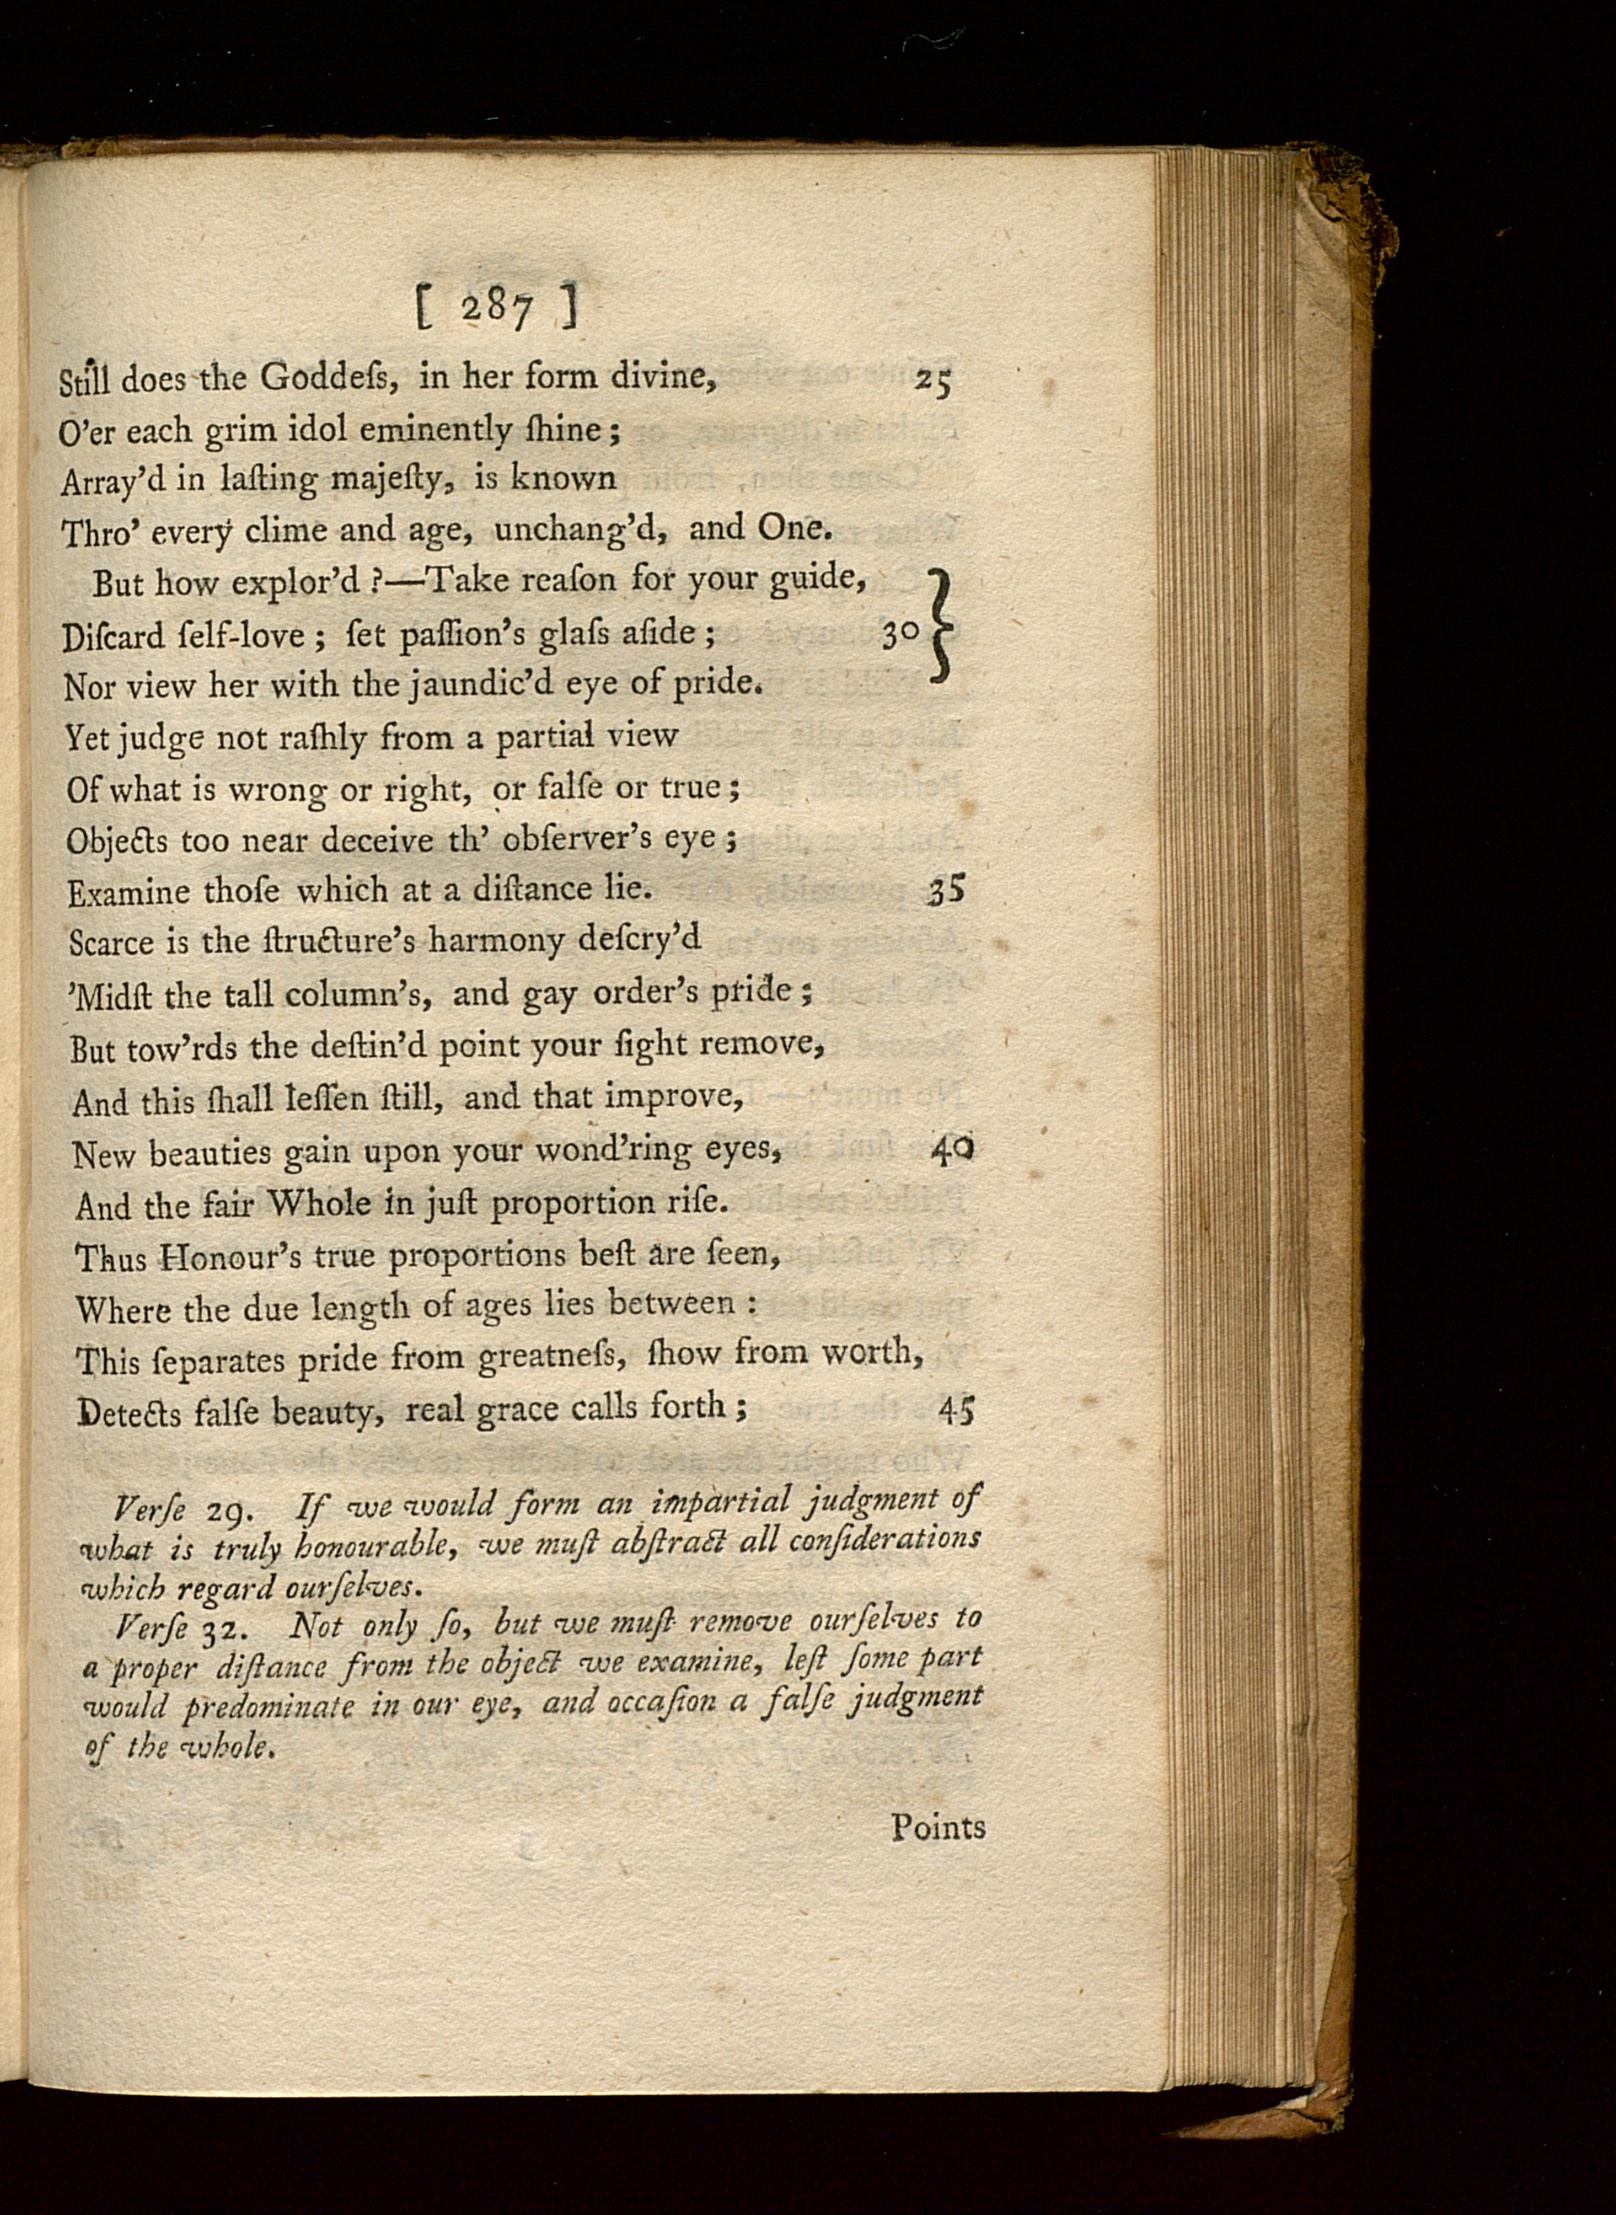 [ 287 ]
Still does the Goddeſs, in her form divine, 25
O'er each grim idol eminently ſhine;
Array'd in laſting majeſty, is known
Thro' every clime and age, unchang'd, and One.
But how explor'd ?—Take reaſon for your guide,
Diſcard ſelf-love; ſet paſſion's glaſs aſide; 30 }
Nor view her with the jaundic'd eye of pride.
Yet judge not raſhly from a partial view
Of what is wrong or right, or falſe or true;
Objects too near deceive th' obſerver's eye;
Examine thoſe which at a diſtance lie. 35
Scarce is the ſtructure's harmony deſcry'd
'Midſt the tall column's, and gay order's pride;
But tow'rds the deſtin'd point your ſight remove,
And this ſhall leſſen ſtill, and that improve,
New beauties gain upon your wond'ring eyes, 40
And the fair Whole in juſt proportion riſe.
Thus Honour's true proportions beſt are ſeen,
Where the due length of ages lies between :
This ſeparates pride from greatneſs, ſhow from worth,
Detects falſe beauty, real grace calls forth; 45
Verſe 29. If we would form an impartial judgment of
what is truly honourable, we muſt abſtract all conſiderations
which regard ourſelves.
Verſe 32. Not only ſo, but we muſt remove ourſelves to
a proper diſtance from the object we examine, leſt ſome part
would predominate in our eye, and occaſion a falſe judgment
of the whole.
Points